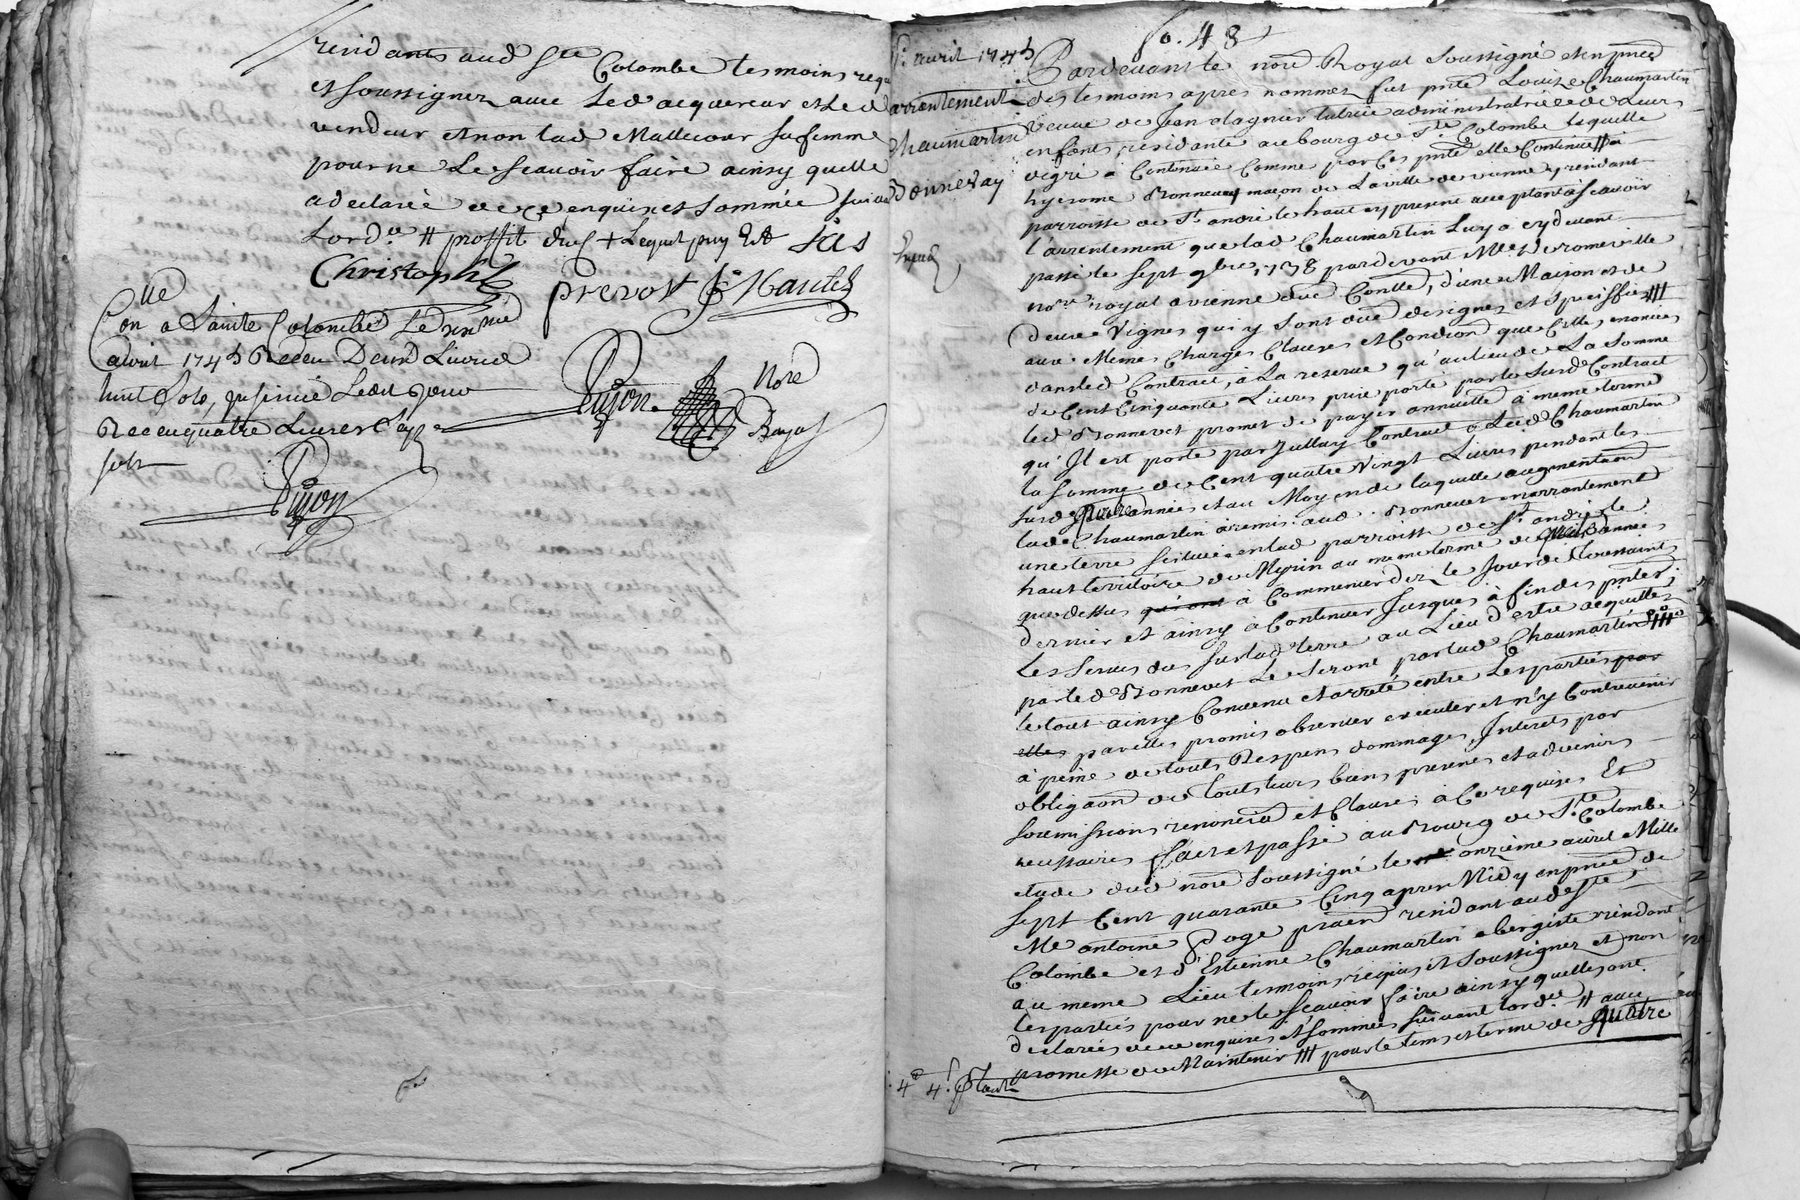 residants aud Ste Colombe temoins requis
et soussignez avec led acquereur et led
vendeur et non lad Mallecour sa femme
pour ne le scavoir faire ainsy quelle
a declaré de ce enquise et sommée suivant
lord.ce # proffit + lequel
Christophle
prevost
J Nantas
Pijon
Nore
Royal
Con.lle a Sainte Colombe Le
avril 1745 Receu Deux Livres
huit sols, insinué Led. jour
Receu quatre Livres
sols
Pijon
fo. 48
avril 1745
arrantement
Chaumartin
Bonnevay
Expedié
Pardevant le nore Royal soussigné et en pnce
des temoins apres nommez fut pnte Louize Chaumartin
veuve de Jean Magnier tutrice administratrice de Leurs
enfans, residante au bourg de Ste Colombe laquelle
degré à Continué comme par ces pntes elle Continue # a
hyerome Bonnevet maçon de La ville de vienne, y residant
parroisse de St andré le haut cy present acceptant a scavoir
l'arrentement que lad Chaumartin luy a cy devant
passé le sept 9bre 1738 pardevant Me de romeville
nore royal a vienne dud Contté, d'une Maison et de
deux Vignes qui y sont dud designés et speciffiés ###
aux Memes Charges Clauses et Condions que Celles enoncées
dans led Contract, à La reserve qu'au lieu de La somme
de Cent Cinquante Livres prix porté par le susd Contract
led Bonnevet promet de payer annuellt à meme terme
qu'Il est porté par Julluy Contract à Lad Chaumartin
la somme de Cent quatre Vingt Livres pendant les
susd quatre années et au Moyen de laquelle augmentaon
lad Chaumartin à remis aud Bonnevet en arrentement
une terre scituée en lad parroisse de St andré le
haut territoire de au meme terme de quatre années
que dessus à Commencer dez le Jour de Toussaint
dernier et ainsy a Continuer Jusques à fin des pntes
Les servis dus sur lad terre au Lieu d'estre acquittés
par led Bonnevet Le seront par lad Chaumartin ###
le tout ainsy Convenu et arreté entre Les parties par
elles par elles promis observer executer et n'y Contrevenir
à peine de touts Despens dommages, Interets par
obligaon de touts leurs biens presents et advenirs
soumissions renonciaons et Clauses à Ce requises Et
necessaires fait et passé au Bourg de Ste Colombe
etude dud nore soussigné le onzieme avril Mille
sept Cent quarante Cinq apres Midy en pnce de
Me antoine Doge praticien residant aud Ste
Colombe et d'Estienne Chaumartin abergiste residant
au meme Lieu temoins requis et soussignez et non
les parties pour ne le scavoir faire ainsy quelles ont
declarées de ce enquises et sommées suivant lord.ce # avec
promesse de Maintenir ### pour le tems et terme de quatre